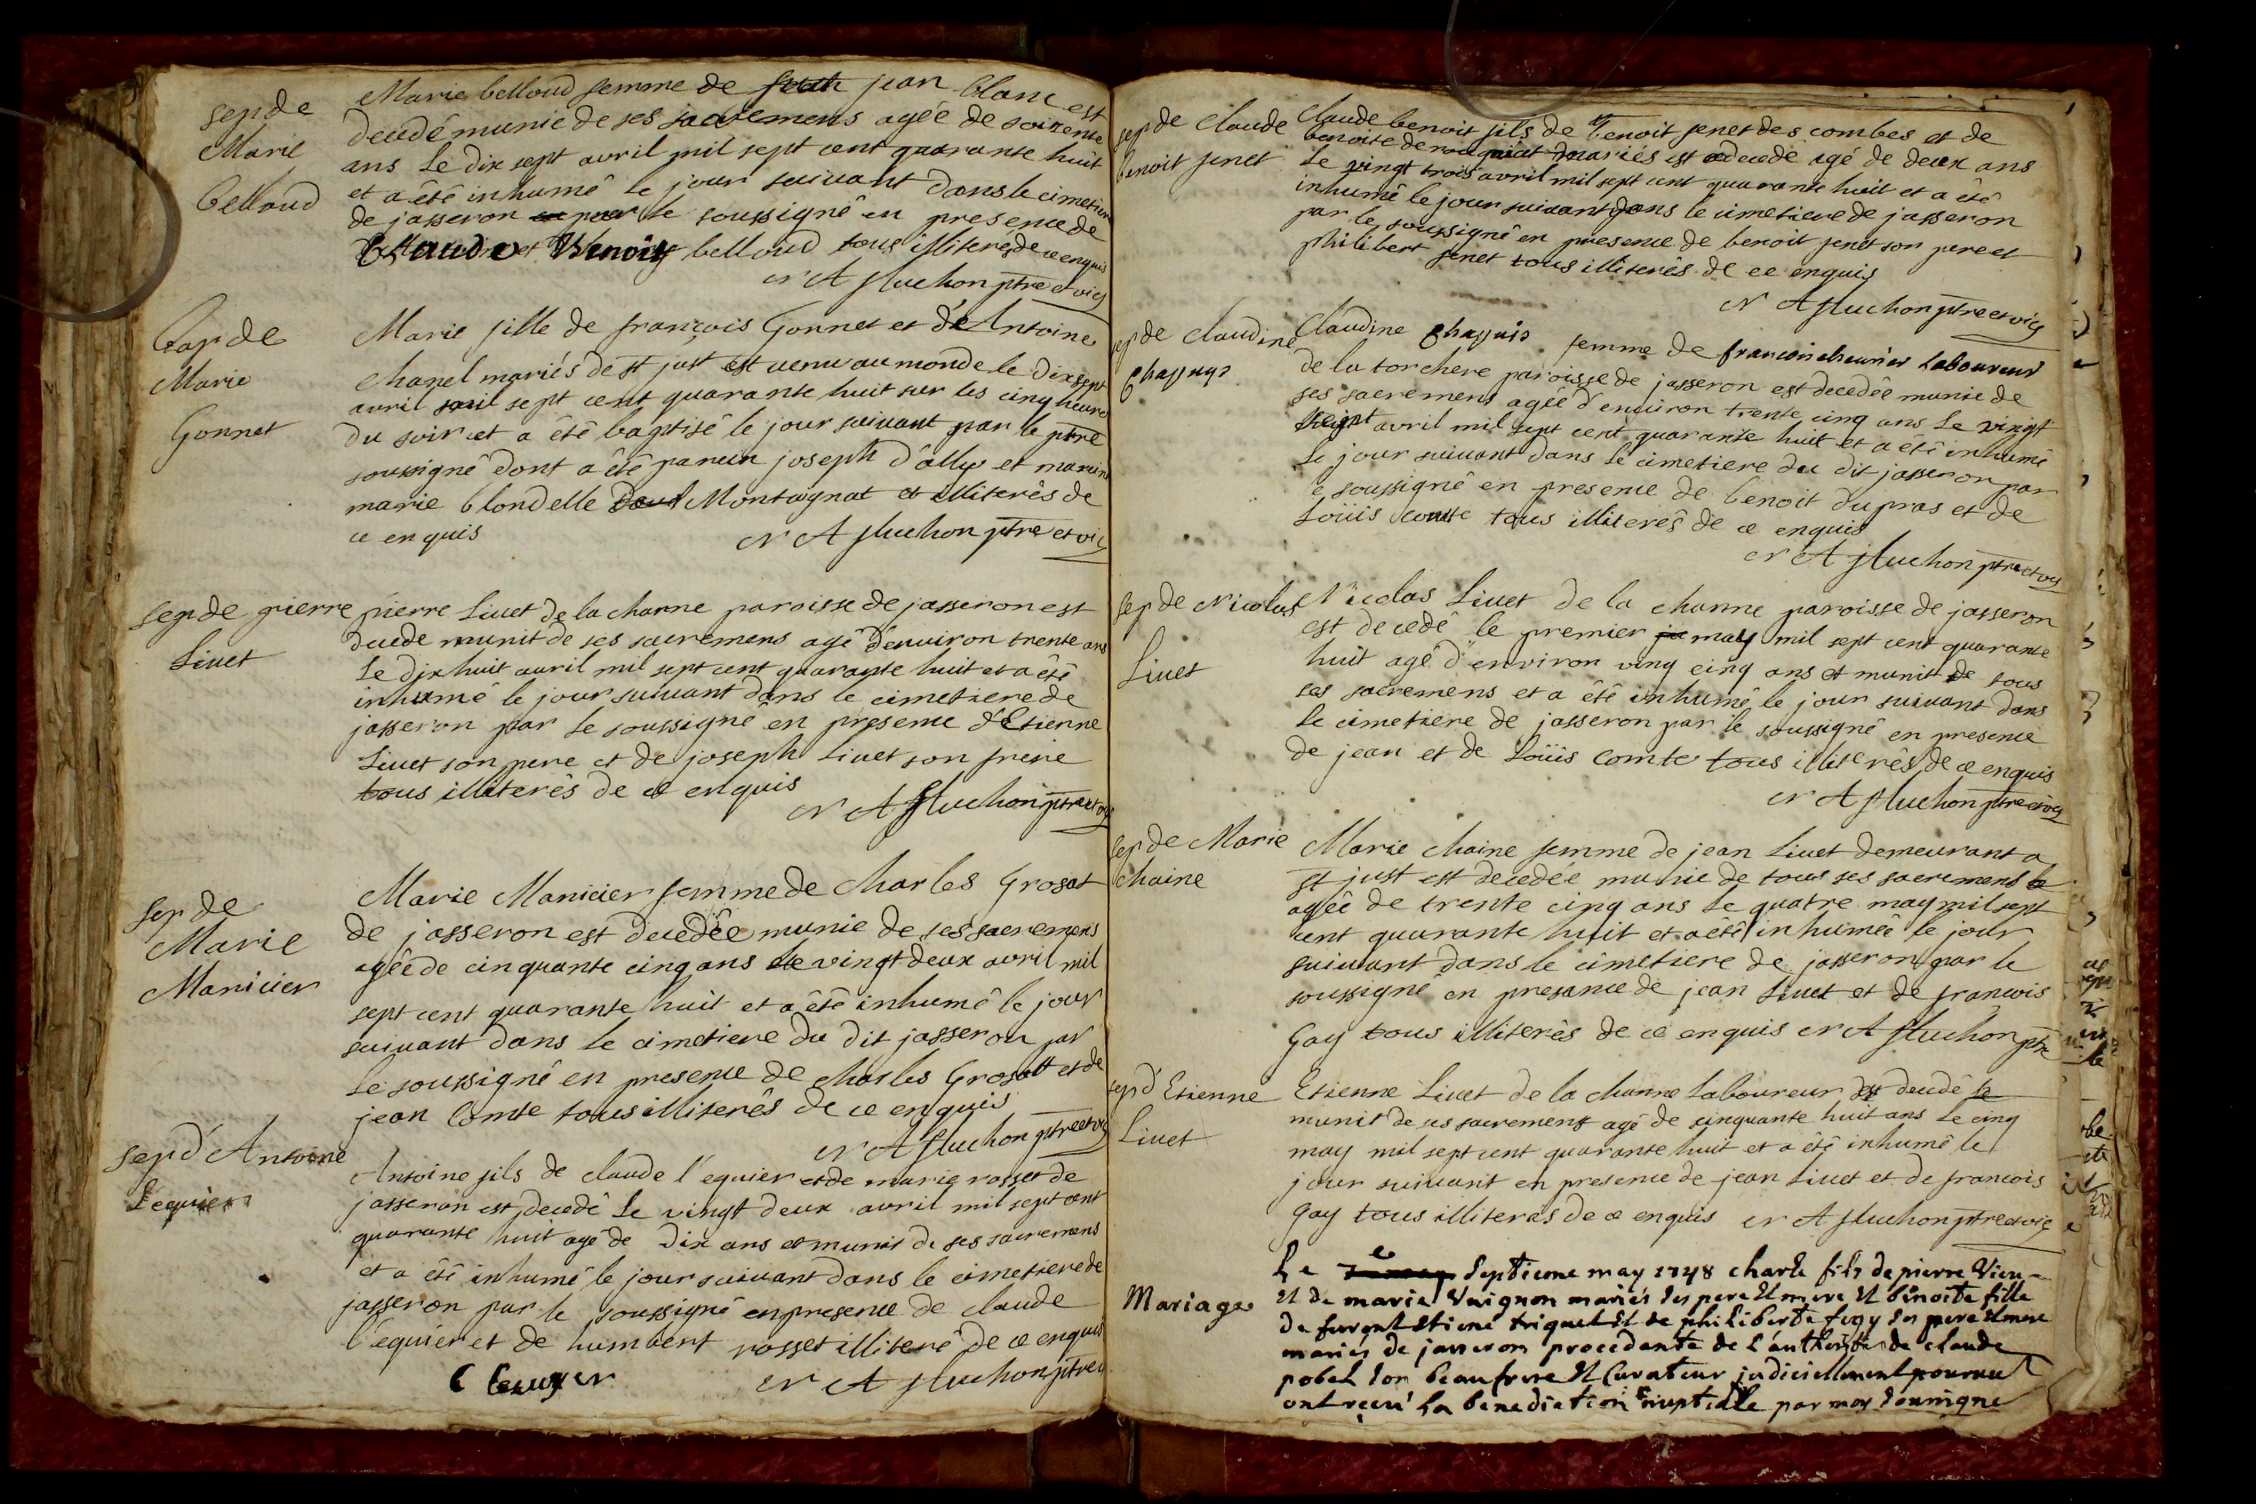 sep de
Marie
belloud
Marie belloud femme de jean blanc est
decedé munie de ses sacremens agéé de soixente
ans le dix sept avril mil sept cent quarante huit
et a êté inhumê le jour suivant dans le cimetiere
de jasseron par le soussigné en presence de
Claude et Benoit belloud tous illiterés de ce enquis
N A fluchon ptre et vic
bap de
Marie
Gonnet
Marie fille de françois Gonnet et d'Antoine
chanel mariés de st just est venu au monde le dix sept
avril mil sept cent quarante huit sur les cinq heures
du soir et a êté baptisé le jour suivant par le ptre
soussigné dont a êté parein joseph d'ally et mareine
marie blondelle Montagnat et illiterés de
ce enquis
N A fluchon ptre et vic
sep de pierre
Livet
pierre Livet de la charne paroisse de jasseron est
decede munit de ses sacremens agé d'environ trente ans
Le dix huit avril mil sept cent quarante huit et a êté
inhumé le jour suivant dans le cimetiere de
jasseron par le soussigné en presence d'Etienne
Livet son pere et de joseph Livet son frere
tous illiterés de ce enquis
N A fluchon ptre et vic
sep de
Marie
Manicier
Marie Manicier femme de charles Grosat
de jasseron est decedêe munie de ses sacremens
agéé de cinquante cinq ans le vingt deux avril mil
sept cent quarante huit et a êté inhumê le jour
suivant dans le cimetiere du dit jasseron par
le soussigné en presence de charles Grosatt et de
jean Comte tous illiterés de ce enquis
N A fluchon ptre et vic
sep d'Antoine
Lequier
Antoine fils de claude l'equier et de marie rosset de
jasseron est decedê le vingt deux avril mil sept cent
quarante huit agé de dix ans munit de ses sacremens
et a êté inhumê le jour suivant dans le cimetiere de
jasseron par le soussigné en presence de claude
l'equier et de humbert rosset illiterê de ce enquis
N A fluchon ptre
sep de claude
benoit jenet
claude benoit fils de benoit jenet des combes et de
benoite de mariés est decedé agé de deux ans
Le vingt trois avril mil sept cent quarante huit et a êté
inhumê le jour suivant dans le cimetiere de jasseron
par le soussigné en presence de benoit jenet son pere et
philibert jenet tous illiterês de ce enquis
N A fluchon ptre et vic
sep de claudine
Chappuys
Claudine Chappuis femme de francois cheurier Laboureur
de la torchere paroisse de jasseron est decedée munie de
ses sacremens agéé d'environ trente cinq ans le vingt
avril mil sept cent quarante huit et a êté inhumé
le jour suivant dans le cimetiere du dit jasseron par
le soussigné en presence de benoit dupras et de
Loüis comte tous illiterés de ce enquis
N A fluchon ptre et vic
sep de Nicolas
Livet
Nicolas Livet de la charne paroisse de jasseron
est decedê le premier may mil sept cent quarante
huit agé d'environ ving cinq ans et munit de tous
ses sacremens et a êté inhumé le jour suivant dans
le cimetiere de jasseron par le soussigné en presence
de jean et de Loüis Comte tous illiterés de ce enquis
N A fluchon ptre et vic
sep de Marie
chaine
Marie chaine femme de jean Livet demeurant a
st just est decedée munie de tous ses sacremens
agéé de trente cinq ans le quatre may mil sept
cent quarante huit et a êté inhumée le jour
suivant dans le cimetiere de jasseron par le
soussigné en presance de jean Livet et de francois
Gay tous illiterés de ce enquis N A fluchon ptre
sep d'Etienne
Livet
Etienne Livet de la charne Laboureur est decedê
munit de ses sacremens agé de cinquante huit ans le cinq
may mil sept cent quarante huit et a êté inhumê le
jour suivant en presence de jean Livet et de francois
Gay tous illiteres de ce enquis N A fluchon ptre et vic
Mariage
Le Septieme may 1748 charle fils de pierre Vieu
et de marie Vuignon mariés ses pere et mere et benoite fille
de furent Etiene triquet et de philiberte fery ses pere et mere
mariés de jasseron procedante de l'authorité de claude
pobel son beaufrere et Curateur judiciellement pourveu
ont reçeu la benediction nuptialle par moy soussigne